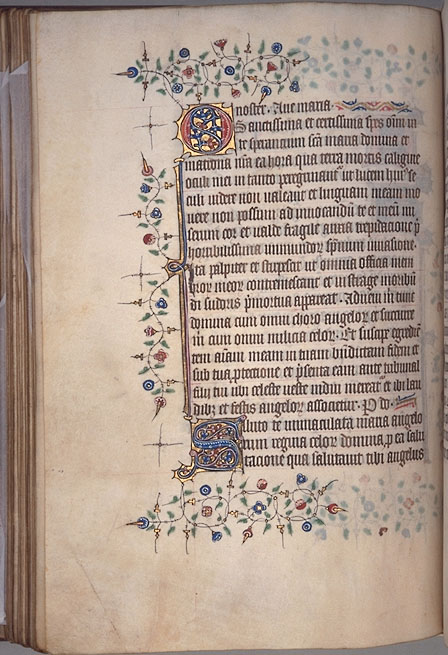 noster. Aue maria.
Sanctissima et certissima spes oīm in
te sperantium scā maria domina et
matrona mea ea hora qua terra mortis caligine
oculi mei in tanto pregrauantr̄ ut lucem huiꝰ se
culi uidere non ualeant et linguam meam mo
uere non possum ad inuocandū te et meū mi
serum cor et ualde fragile auria trepidacione p̄
horribilissima inmundoꝝ spirituū inuasione.
Ita palpitet et stupescet ut omnia officia mem
broꝝ meoꝝ contremescant et in strage moribū
di sudoris p̄mortua appareat. Adueni m̄ tunc
domina cum omni choro angeloꝝ et succurre
m̄ cum omni milicia celoꝝ. Et suscipe egredi
rem aīam meam in tuam bn̄dictam fidem et
sub tua ꝓtectione et p̄senta eam ante tribunal
filij tui ubi celeste ueste indui mereat᷑ et ibi lau
dibꝫ et festis angeloꝝ associetur. P̄ do.
Saluto te inmaculata maria angelo
rum regina celoꝝ domina, p̄ ea salu
tacione qua salutauit tibi angelus